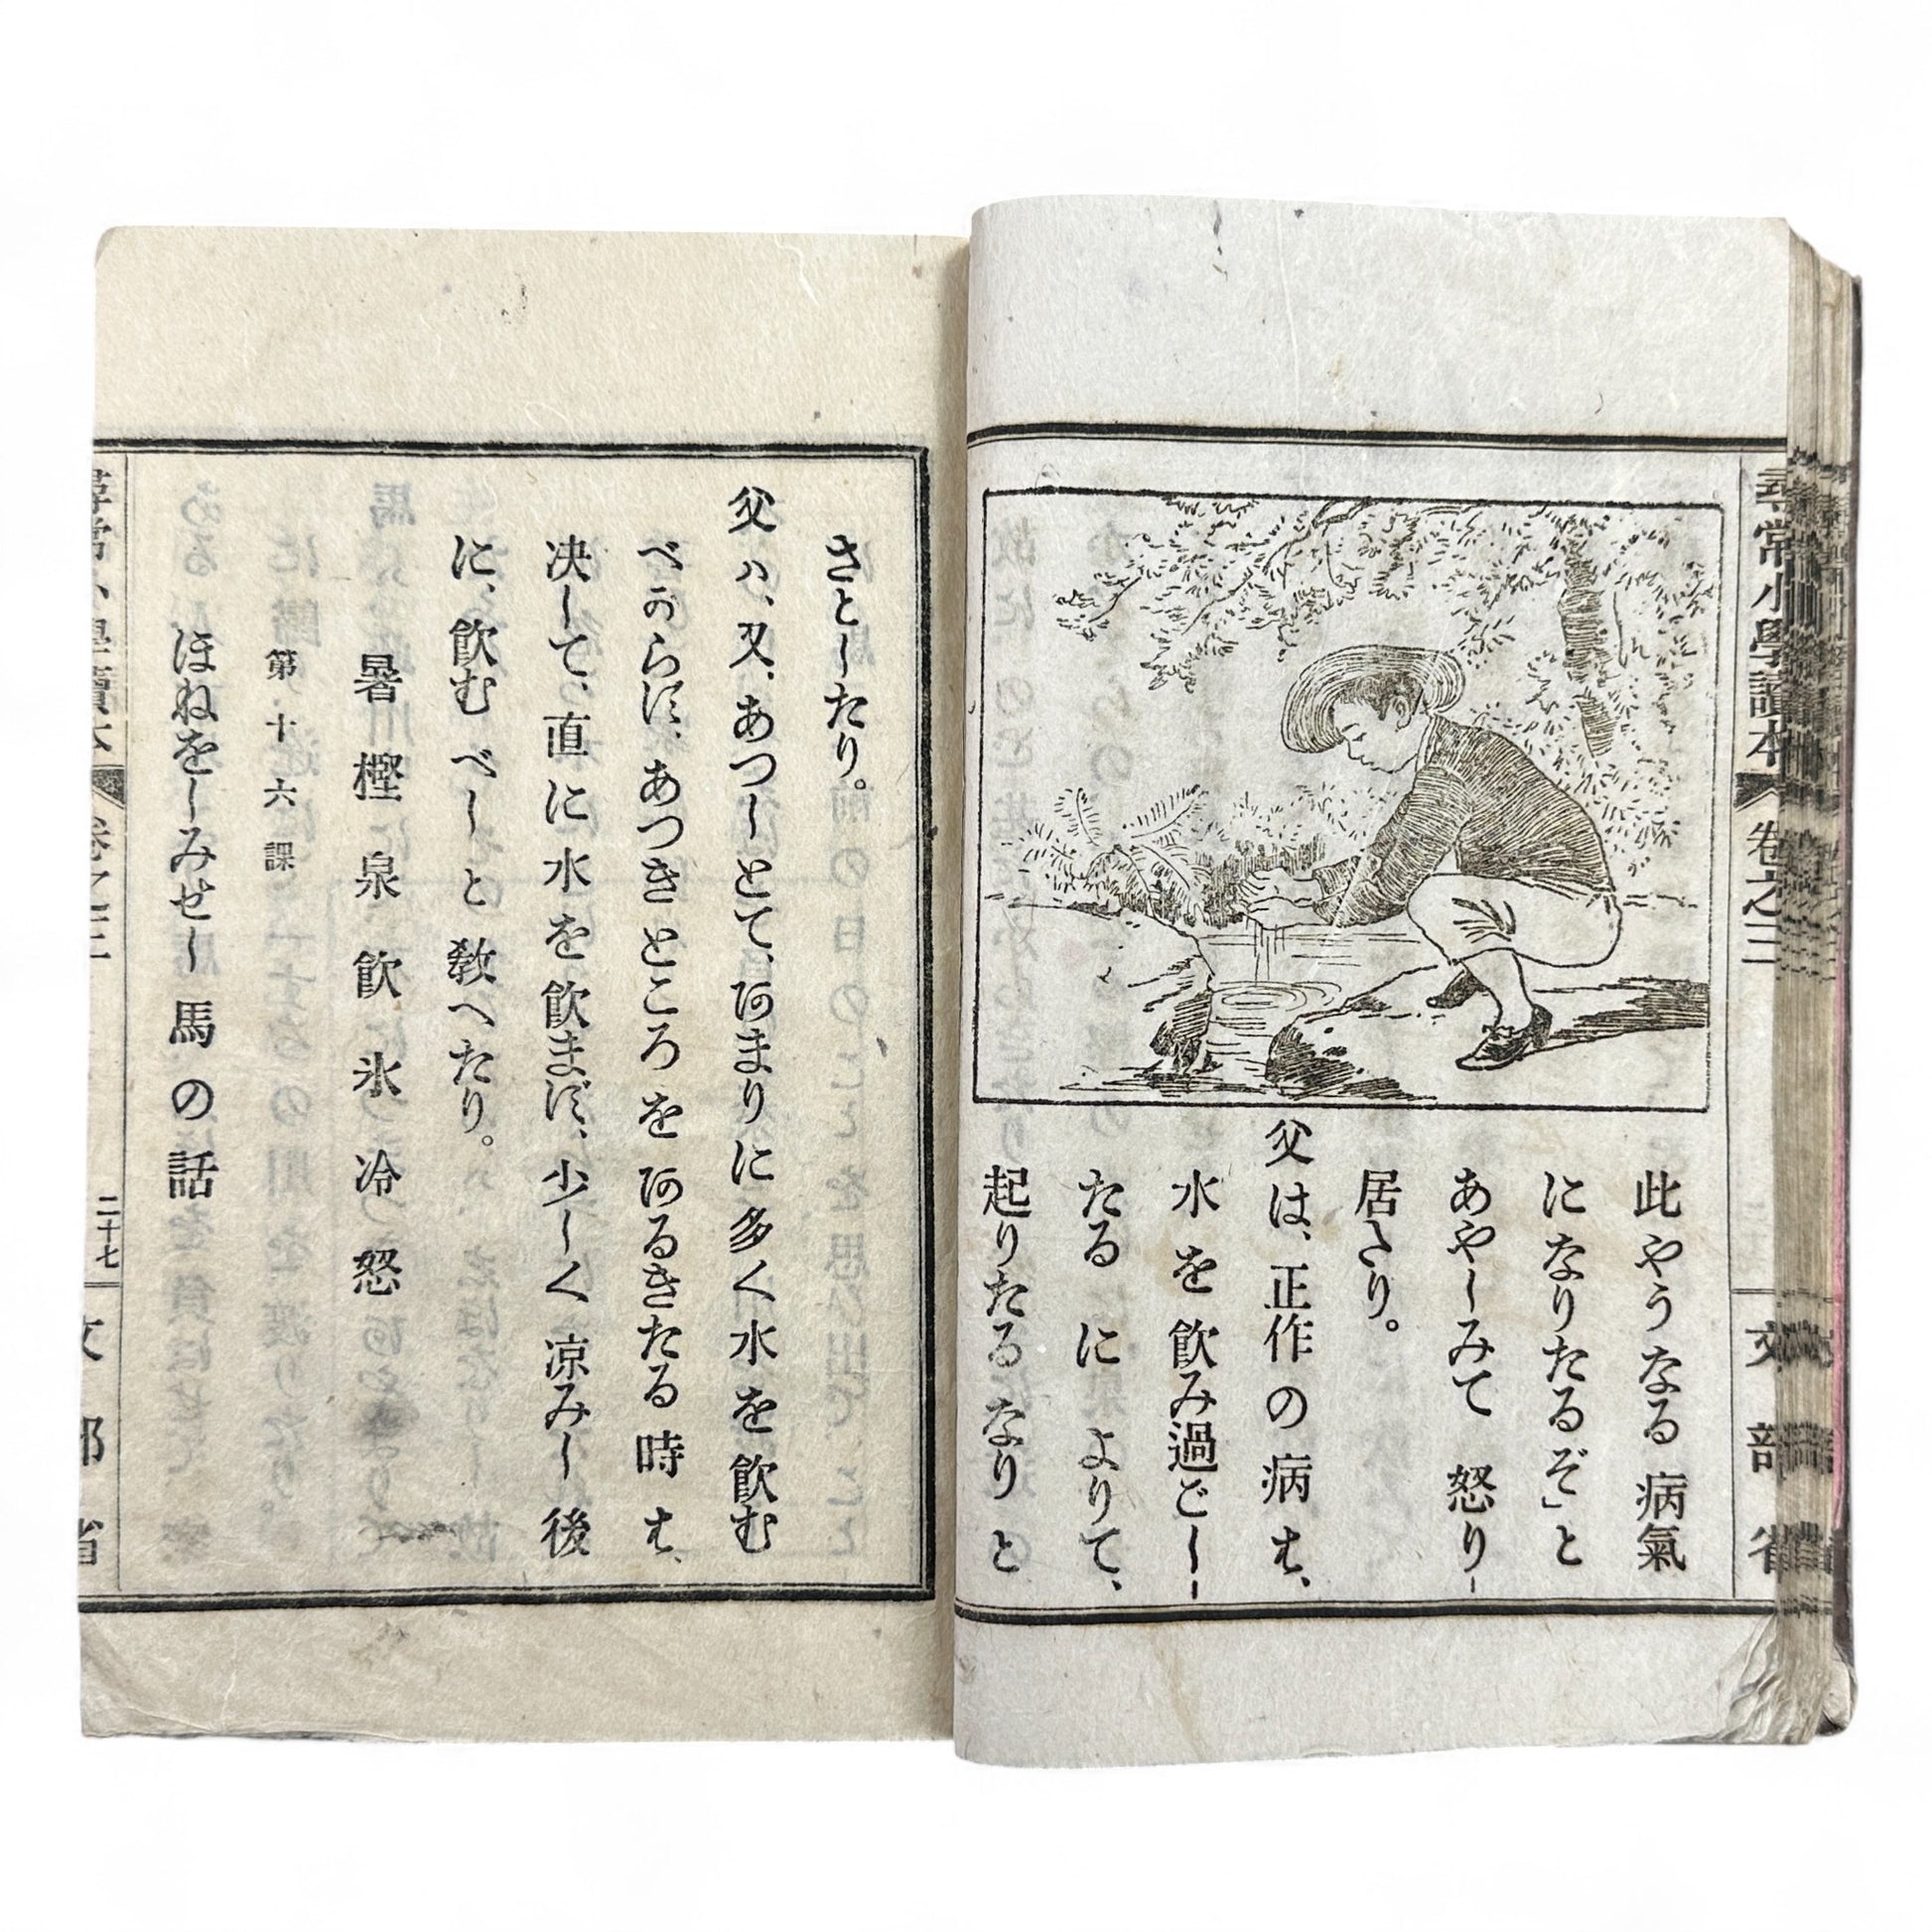 尋常小學讀本 卷之三 文部省
此やうなる病氣
になりたるぞ」と
あやしみて 怒り
居たり。
父は、正作の病は、
水を飲み過ごし
たるによりて、
起りたるなりと
さとしたり。
父ハ、又、あつしとて、あまりに多く水を飲む
べからず、あつきところをあるきたる時は、
決して、直に水を飲まず、少しく凉みし後
に、飲むべしと教へたり。
暑 樫 泉 飲 氷 冷 怒
第十六課
ほねをしみせし馬の話
尋常小學讀本 卷之三 二十七 文部省